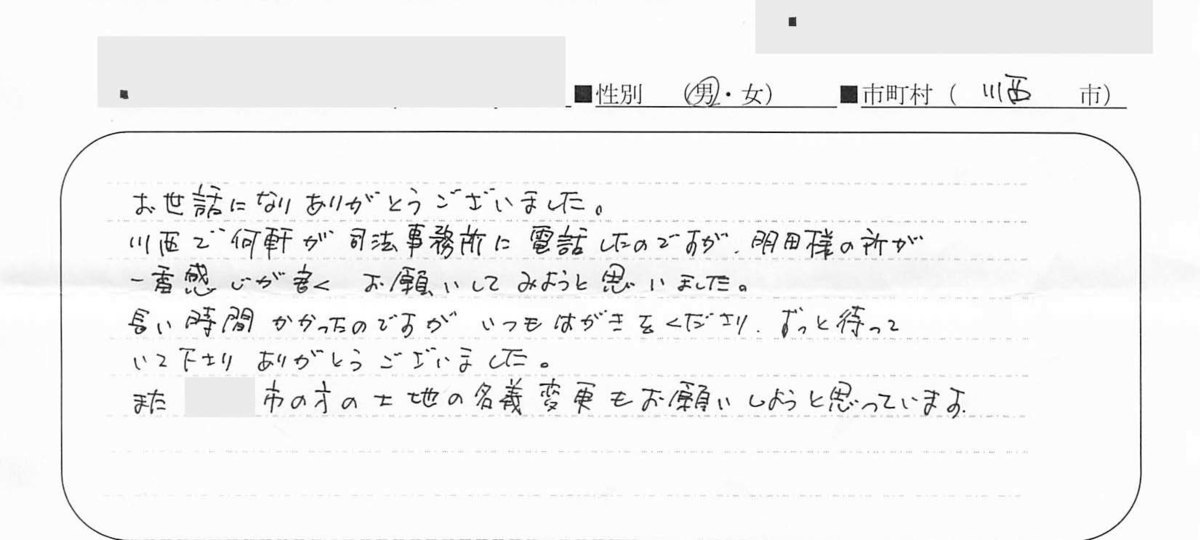 ■性別 （男・女） ■市町村（ 川西 市）
お世話になりありがとうございました。
川西で何軒が司法事務所に電話したのですが、明田様の所が
一番感じが良く お願いしてみようと思いました。
長い時間かかったのですが いつもはがきをくださり、ずっと待って
いて下さり ありがとうございました。
また 市の方の土地の名義変更もお願いしようと思っています。